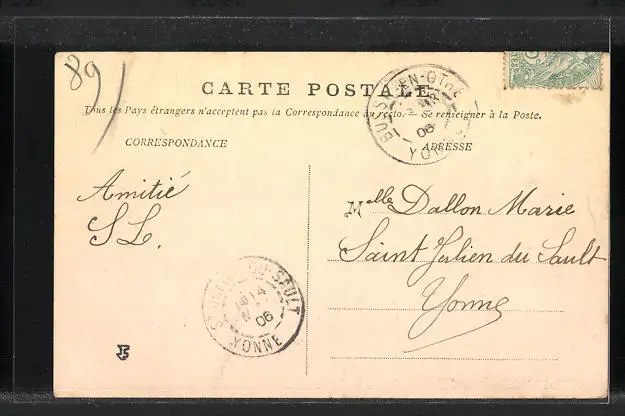 89
CARTE POSTALE
Tous les Pays étrangers n'acceptent pas la Correspondance au recto. — Se renseigner à la Poste.
CORRESPONDANCE
ADRESSE
BUSSY-EN-OTHE
06
YONNE
Amitié
SL.
Melle Dallon Marie
Saint Julien du Sault
Yonne
ST JULIEN-DU-SAULT
14
06
YONNE